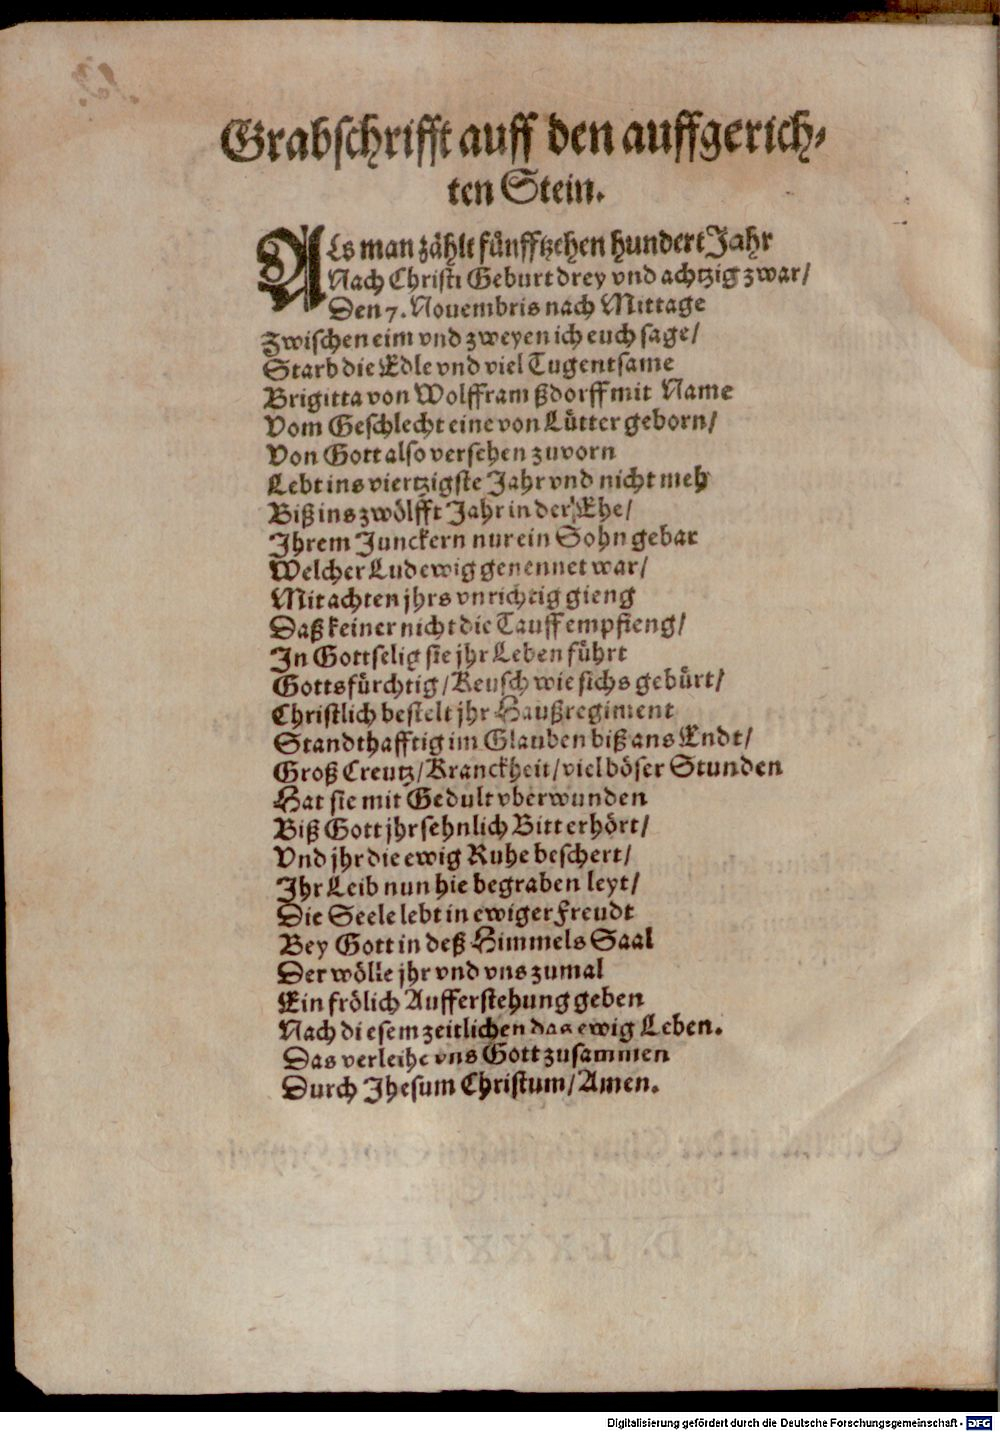 Grabschrifft auff den auffgerich-
ten Stein.
ALs man zählt fünfftzehen hundert Jahr
Nach Christi Geburt drey vnd achtzig zwar/
Den 7. Nouembris nach Mittage
Zwischen eim vnd zweyen ich euch sage/
Starb die Edle vnd viel Tugentsame
Brigitta von Wolfframßdorff mit Name
Vom Geschlecht eine von Lütter geborn/
Von Gott also versehen zuvorn
Lebt ins viertzigste Jahr vnd nicht meh
Biß ins zwölfft Jahr in der Ehe/
Ihrem Junckern nur ein Sohn gebar
Welcher Ludewig genennet war/
Mit achten jhrs vnrichtig gieng
Daß keiner nicht die Tauff empfieng/
In Gottselig sie jhr Leben führt
Gottsfürchtig/ Keusch wie sichs gebürt/
Christlich bestelt jhr Haußregiment
Standthafftig im Glauben biß ans Endt/
Groß Creutz/ Kranckheit/ viel böser Stunden
Hat sie mit Gedult vberwunden
Biß Gott jhr sehnlich Bitt erhört/
Vnd jhr die ewig Ruhe beschert/
Ihr Leib nun hie begraben leyt/
Die Seele lebt in ewiger Freudt
Bey Gott in deß Himmels Saal
Der wölle jhr vnd vns zumal
Ein frölich Aufferstehung geben
Nach diesem zeitlichen das ewig Leben.
Das verleihe vns Gott zusammen
Durch Jhesum Christum/ Amen.
Digitalisierung gefördert durch die Deutsche Forschungsgemeinschaft - DFG